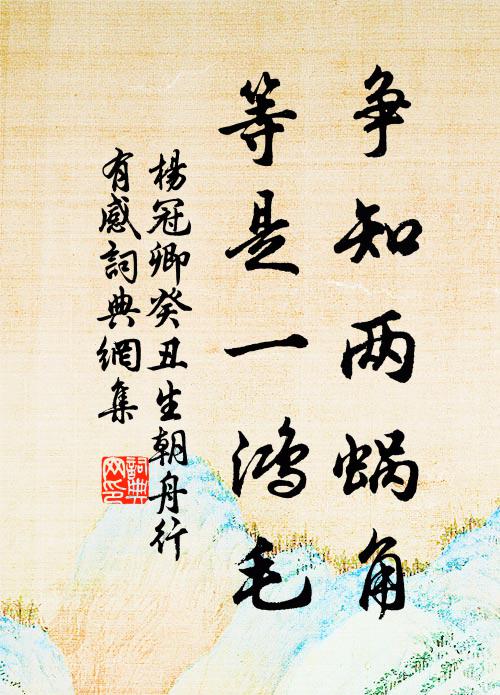 争知两蜗角
等是一鸿毛
楊冠卿癸丑生朝舟行
有感詞典網集
詞典
网印